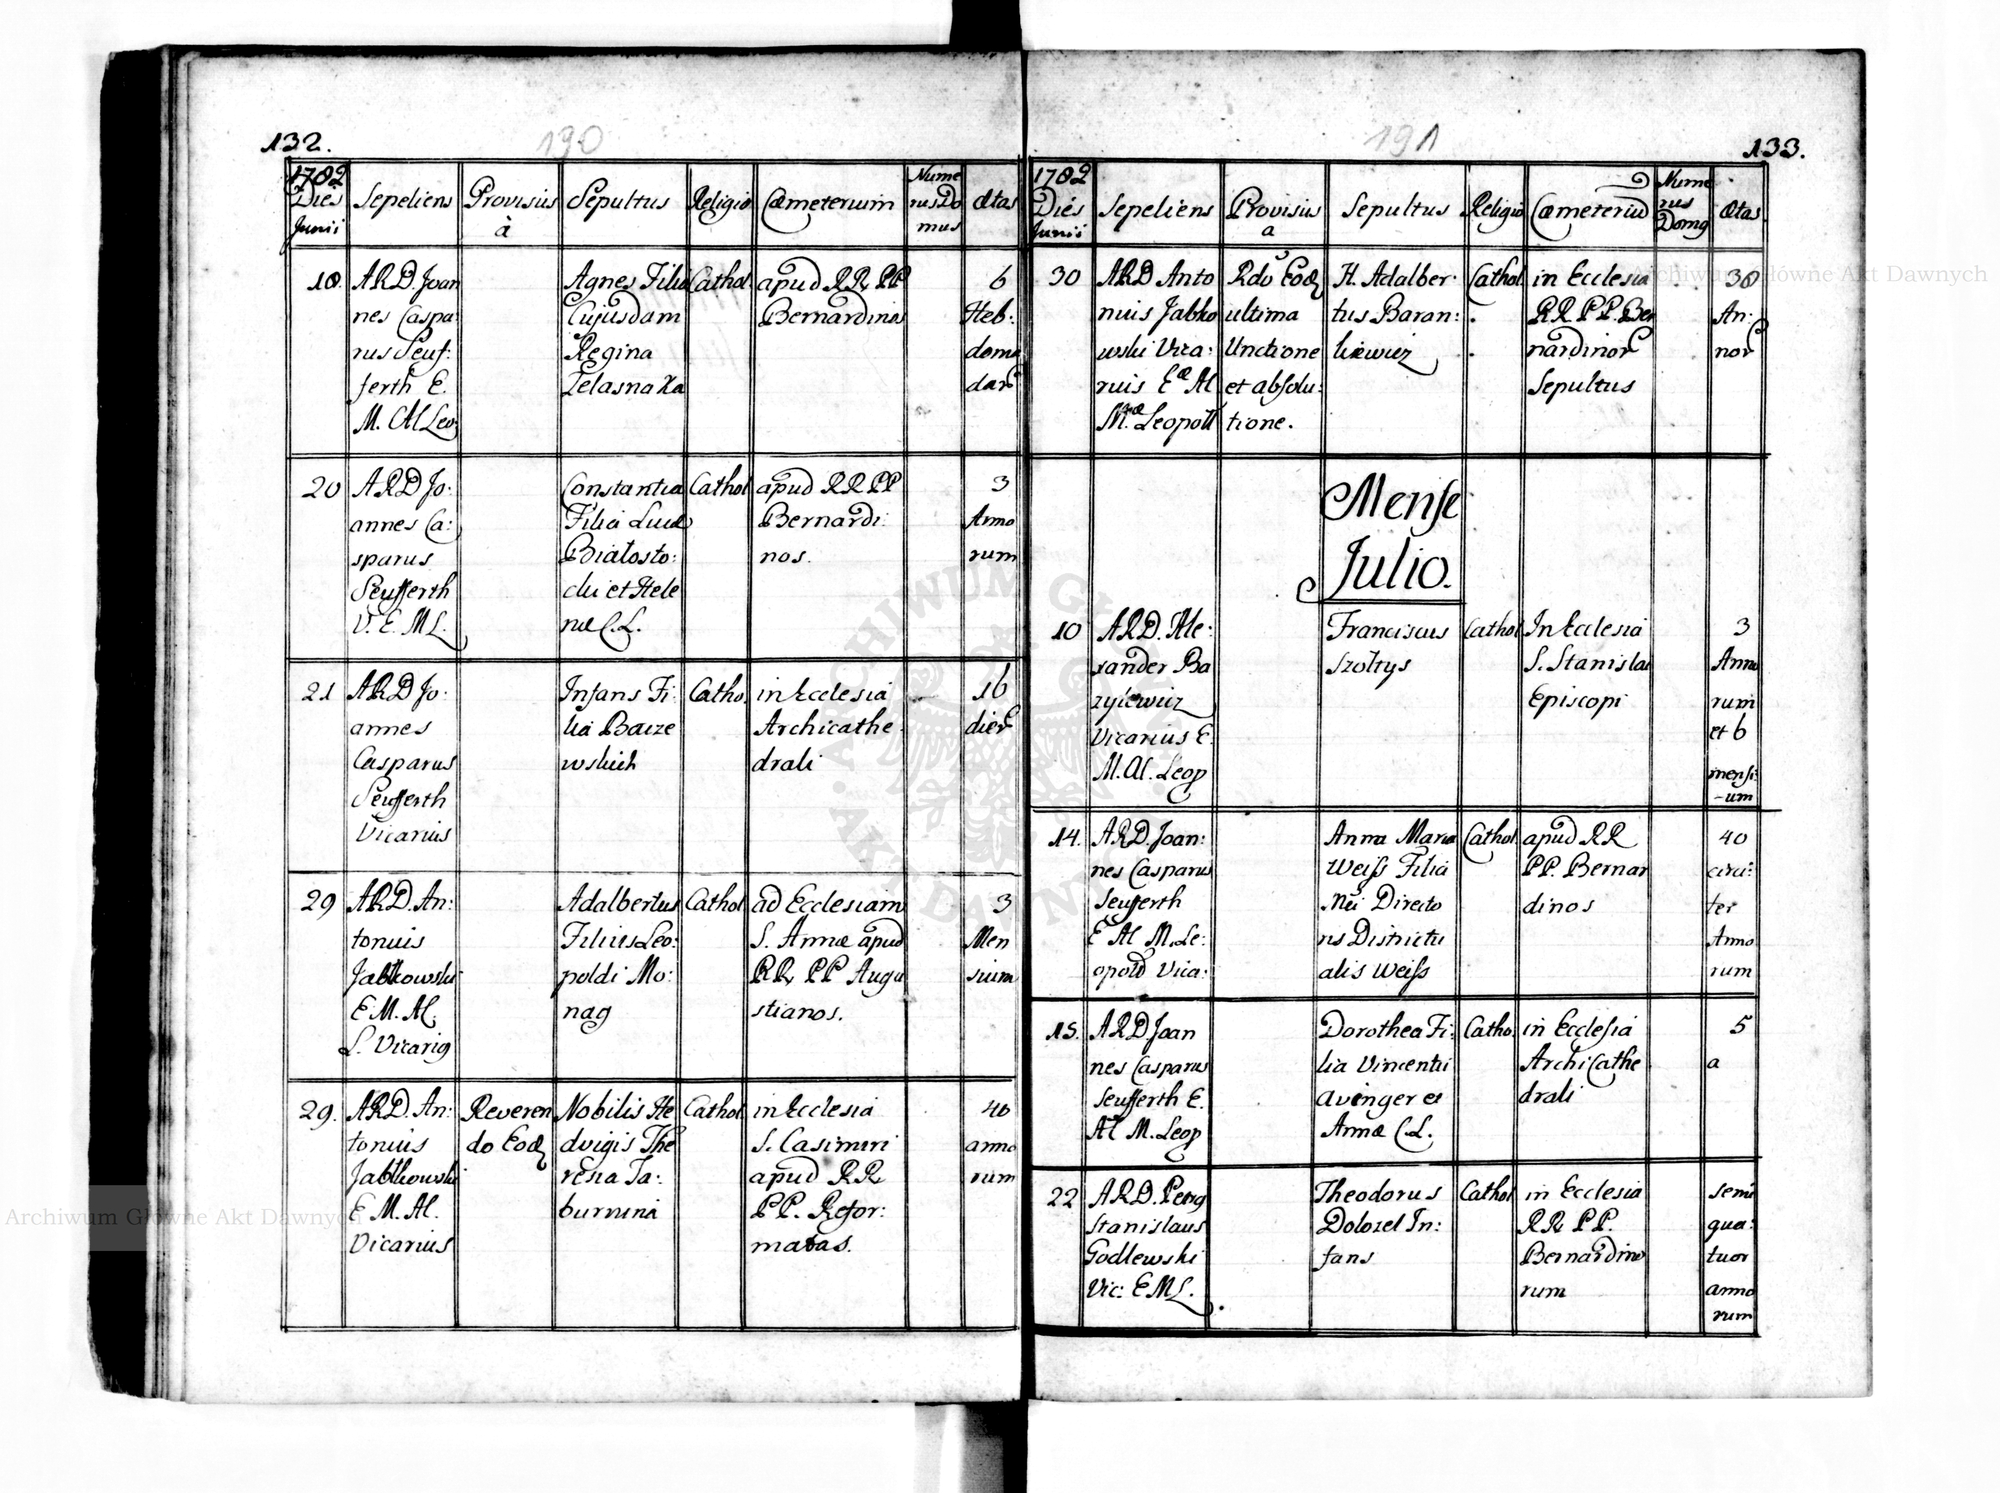 132.
190
1782
Dies
Junii
Sepeliens
Provisus
à
Sepultus
Religio
Cæmeterium
Nume
rus Do
mus
Ætas
18.
ARD. Joan
nes Caspa:
rus Seuf:
ferth E.
M. Al Leo
Agnes Filia
Cujusdam
Regina
Zelasna
Cathol
apud RR PP
Bernardinos
6
Heb:
doma
dar
20
ARD Jo:
annes Ca:
sparus
Seufferth
V. E. M L.
Constantia
Filia Lucæ
Białosto:
cki et Hele
næ C.L.
Cathol
apud RR PP
Bernardi
nos.
3
Anno
rum
21
ARD Jo:
annes
Casparus
Seufferth
Vicarius
Infans Fi:
lia
wskich
Catho.
in Ecclesia
Archicathe
drali
16
dier
29
ARD. An:
tonius
Jabłkowski
E M. Al.
L. Vicari9
Adalbertus
Filius Leo:
poldi Mo:
nag
Cathol
ad Ecclesiam
S. Annæ apud
RR PP Augu
stianos.
3
Men
sium
29.
ARD. An:
tonius
Jabłkowski
E M. Al.
Vicarius
Reveren
do Eod
Nobilis He
dvigis The
resia Ta:
burnina
Cathol
in Ecclesia
S. Casimiri
apud RR
PP. Refor:
matas.
46
anno
rum
133.
191
1782
Dies
Junii
Sepeliens
Provisus
a
Sepultus
Religio
Cæmeteriu
Nume
rus
Dom9
Ætas
30
ARD Anto
nius Jabko
wski Vica:
rius E Al
M. Leopoll
Rdo Eod
ultima
Unctione
et absolu:
tione.
H. Adalber:
tus Baran:
kiewicz
Cathol
in Ecclesia
RR. PP. Ber
nardinor
Sepultus
38
An:
nor
Mense
Julio.
10
ARD. Ale:
xander Ba
zylewicz
Vicarius E.
M. Al. Leop
Franciscus
Szołtys
Cathol
In Ecclesia
S. Stanislai
Episcopi
3
Anno
rum
et 6
mensi:
-um
14.
ARD. Joan:
nes Casparus
Seufferth
E Al M. Le:
opold Vica:
Anna Maria
Weiss Filia
Directo
ris Districtu
alis Weiss
Cathol.
apud RR
PP. Bernar
dinos
40
circi:
ter
Anno
rum
15.
ARD Joan
nes Casparus
Seufferth E.
Al M. Leop
Dorothea Fi:
lia Vincentii
Avinger et
Annæ C.L.
Catho.
in Ecclesia
ArchiCathe
drali
5
a
22
ARD. Petr9
Stanislaus
Godlewski
Vic: E M L.
Theodorus
Dolozel In:
fans
Cathol
in Ecclesia
RR PP.
Bernardino
rum
semi
qua:
tuor
anno
rum
Archiwum Główne Akt Dawnych
Archiwum Główne Akt Dawnych
ARCHIWUM GŁÓWNE AKT DAWNYCH